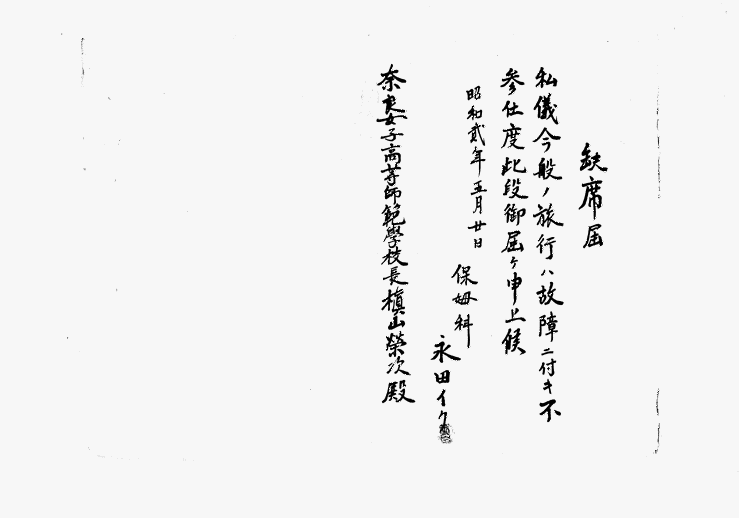 缺席届
私儀今般ノ旅行ハ故障ニ付キ不
参仕度此段御届ケ申上候
昭和貳年五月廿日
保姆科
永田イク
奈良女子高等師範學校長槇山榮次殿